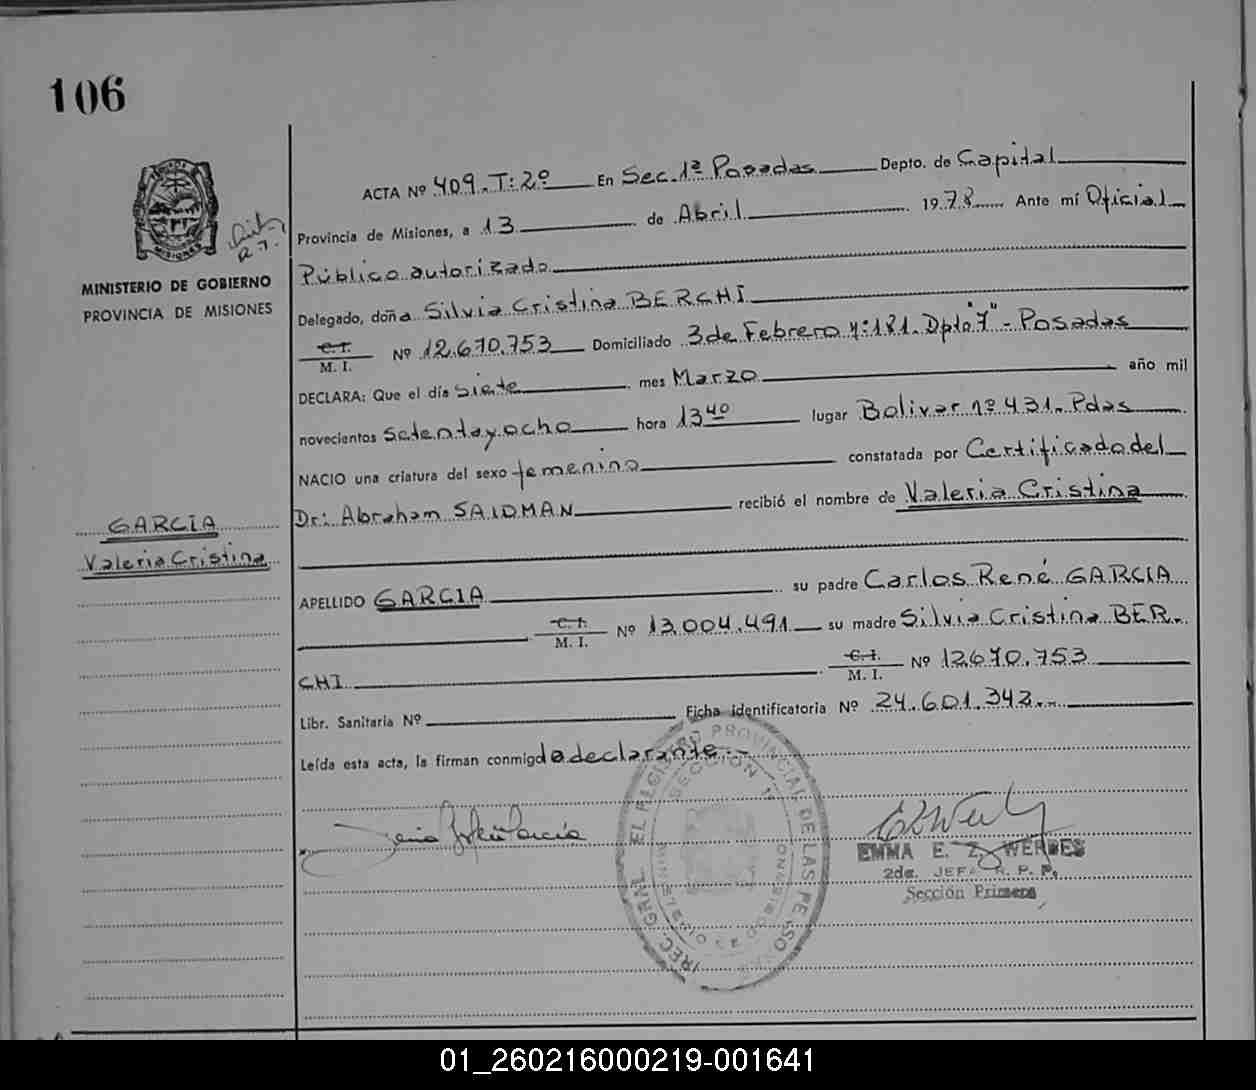 106
MINISTERIO DE GOBIERNO
PROVINCIA DE MISIONES
ACTA Nº 409. T: 2º En Sec. 1ª Posadas Depto. de Capital
Provincia de Misiones, a 13 de Abril 1978 Ante mí Oficial
Público autorizado
Delegado, doña Silvia Cristina BERCHI
C.I.
M. I. Nº 12.670.753 Domiciliado 3 de Febrero nº 181. Dpto "7" - Posadas
DECLARA: Que el día Siete mes Marzo año mil
novecientos setenta y ocho hora 13 40 lugar Bolivar nº 431. Pdas
NACIO una criatura del sexo femenino constatada por Certificado del
Dr: Abraham SAIDMAN recibió el nombre de Valeria Cristina
GARCIA
Valeria Cristina
APELLIDO GARCIA su padre Carlos René GARCIA
C.I.
M. I. Nº 13.004.491 su madre Silvia Cristina BER-
CHI C.I.
M. I. Nº 12.670.753
Libr. Sanitaria Nº Ficha identificatoria Nº 24.601.342.-
Leída esta acta, la firman conmigo la declarante.-
SECCION 1ª
EMMA E. Z. WERBES
2da. JEFA R. P. P.
Sección Primera
01_260216000219-001641